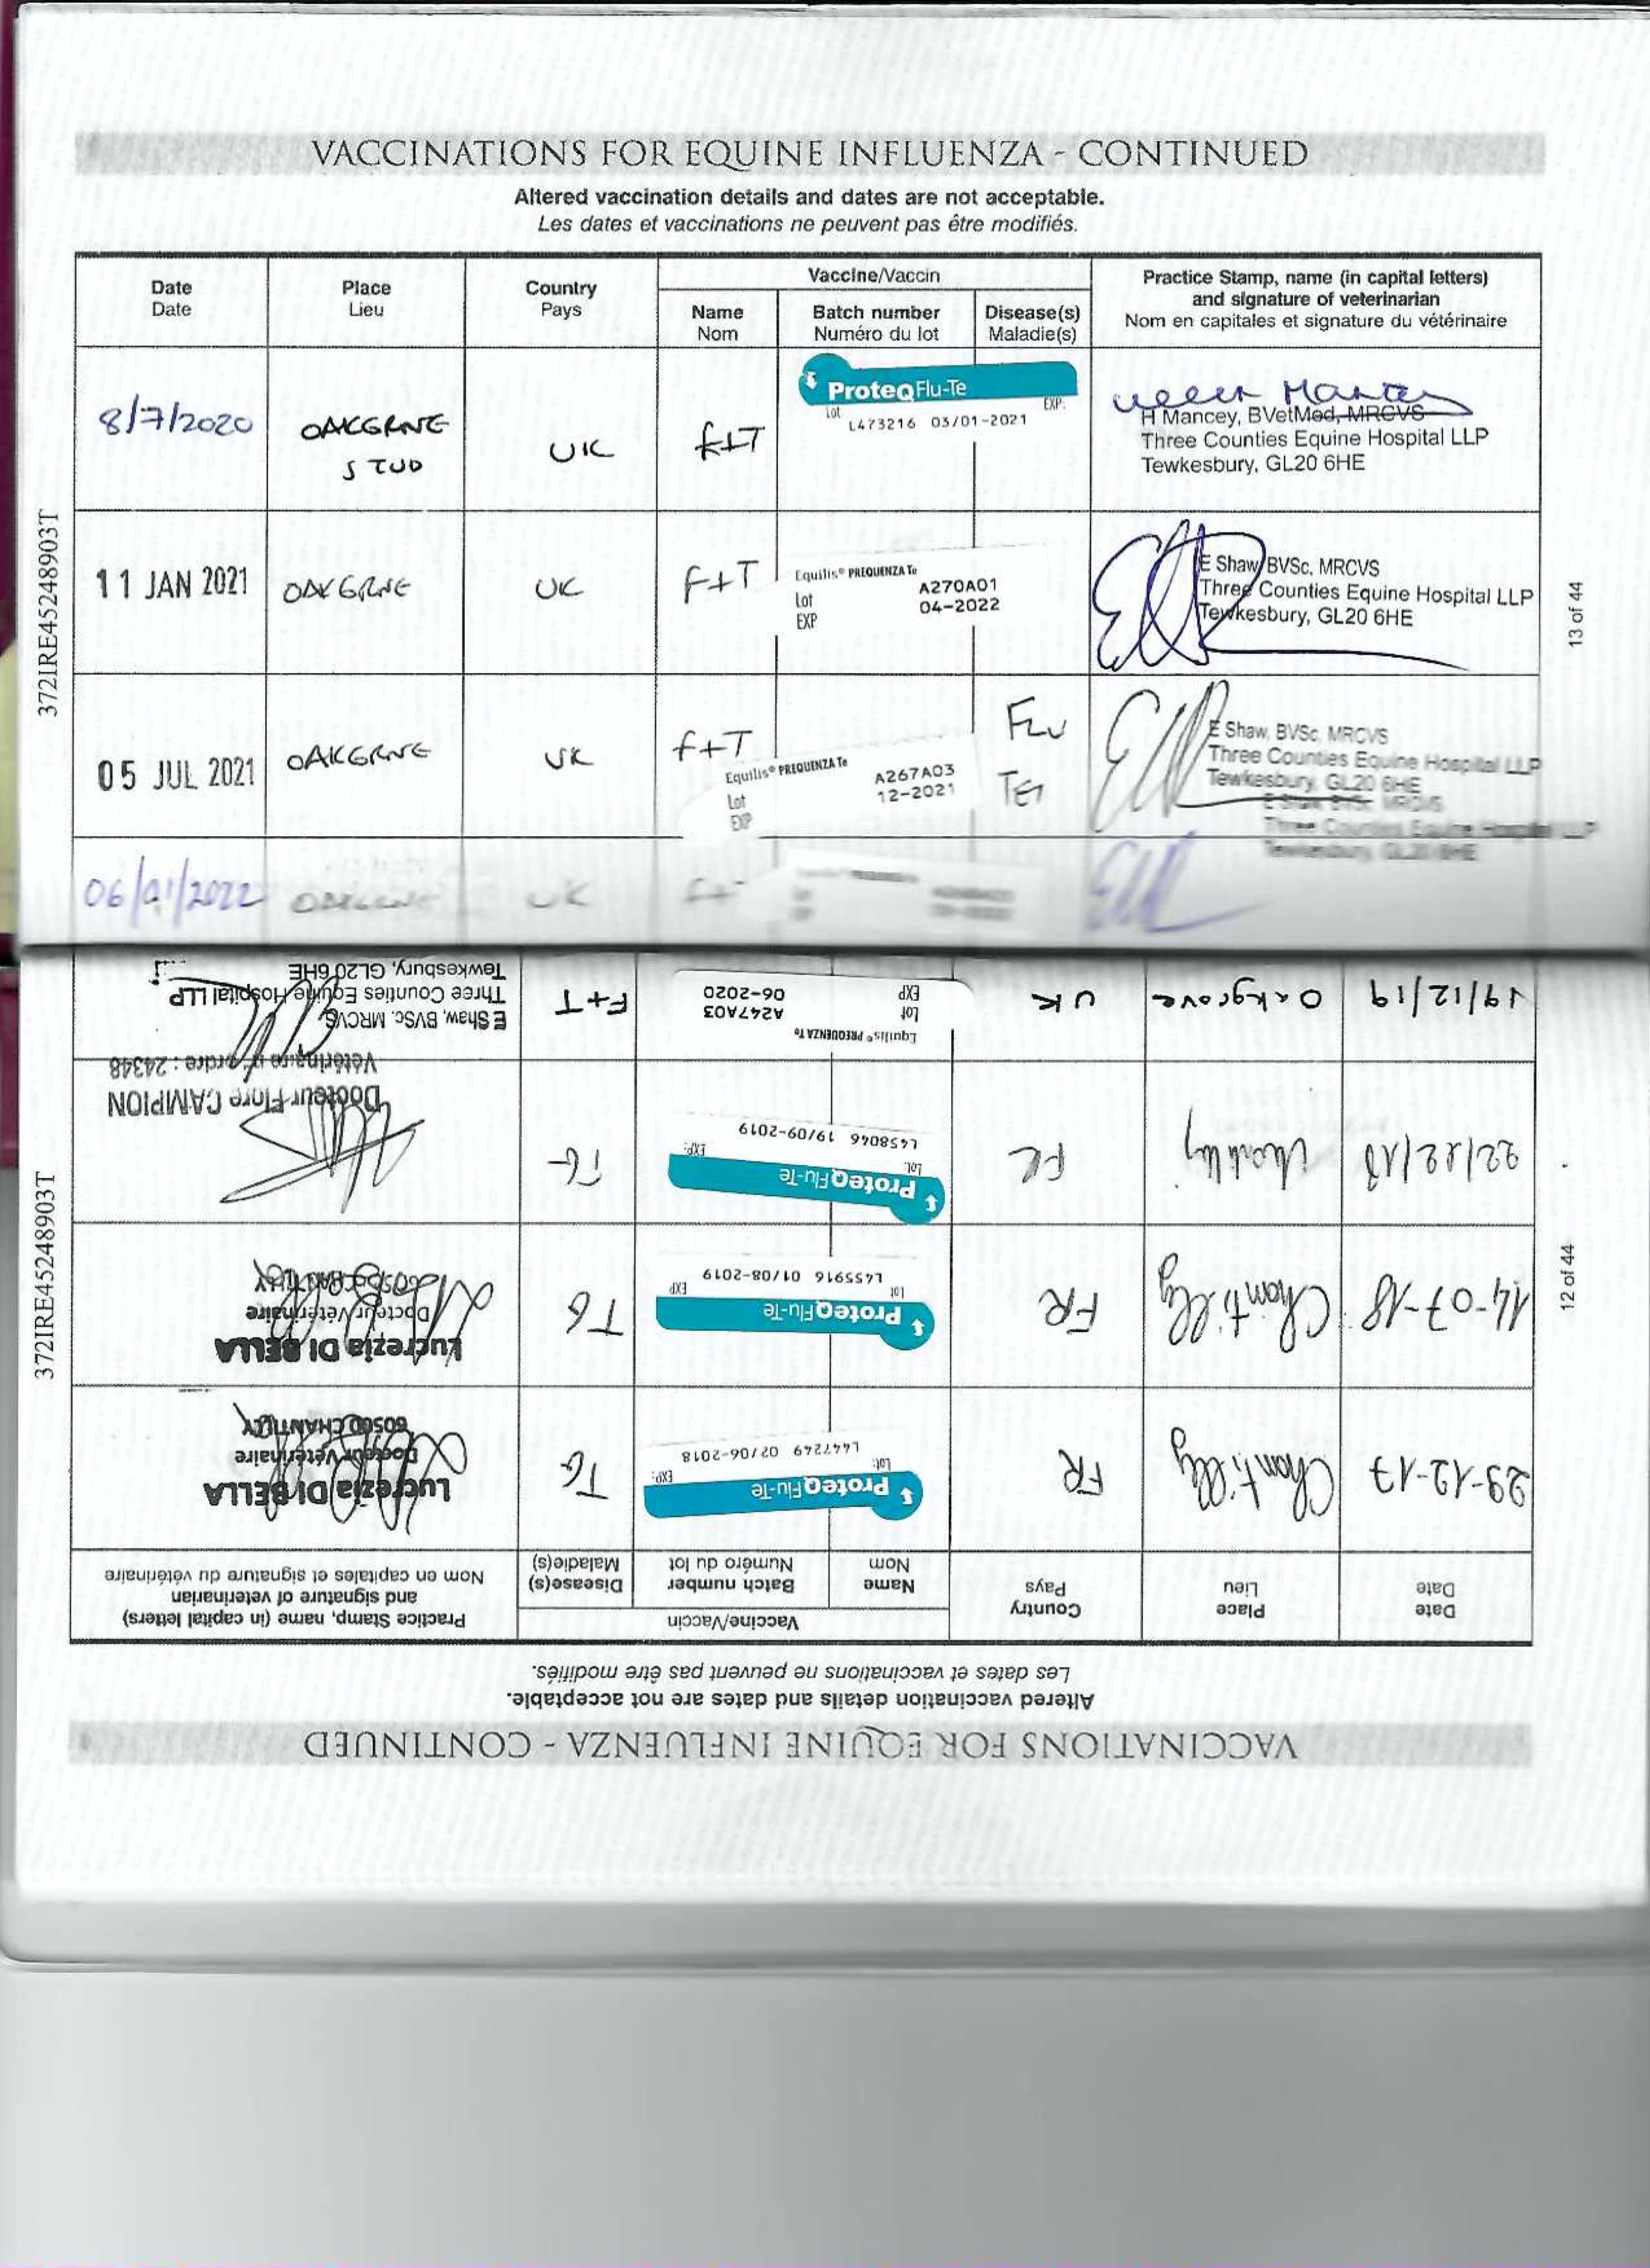 VACCINATIONS FOR EQUINE INFLUENZA - CONTINUED
Altered vaccination details and dates are not acceptable.
Les dates et vaccinations ne peuvent pas être modifiés.
Date
Date
Place
Lieu
Country
Pays
Vaccine/Vaccin
Name
Nom
Batch number
Numéro du lot
Disease(s)
Maladie(s)
Practice Stamp, name (in capital letters)
and signature of veterinarian
Nom en capitales et signature du vétérinaire
8/7/2020
STUD
UK
F+T
ProteqFlu-Te
Lot
EXP:
L473216 03/01-2021
H Mancey, BVetMed, MRCVS
Three Counties Equine Hospital LLP
Tewkesbury, GL20 6HE
11 JAN 2021
UK
F+T
Equilis® PREQUENZA Te
Lot A270A01
EXP 04-2022
E Shaw, BVSc, MRCVS
Three Counties Equine Hospital LLP
Tewkesbury, GL20 6HE
05 JUL 2021
UK
F+T
Equilis® PREQUENZA Te
Lot A267A03
EXP 12-2021
FLU
TET
E Shaw, BVSc, MRCVS
Three Counties Equine Hospital LLP
Tewkesbury, GL20 6HE
E Shaw, BVSc, MRCVS
Three Counties Equine Hospital LLP
Tewkesbury, GL20 6HE
06/01/2022
UK
372IRE45248903T
13 of 44
VACCINATIONS FOR EQUINE INFLUENZA - CONTINUED
Altered vaccination details and dates are not acceptable.
Les dates et vaccinations ne peuvent pas être modifiés.
Date
Date
Place
Lieu
Country
Pays
Vaccine/Vaccin
Name
Nom
Batch number
Numéro du lot
Disease(s)
Maladie(s)
Practice Stamp, name (in capital letters)
and signature of veterinarian
Nom en capitales et signature du vétérinaire
29-12-17
Chantilly
FR
ProteqFlu-Te
Lot:
EXP:
L447249 02/06-2018
TG
Lucrezia DI BELLA
Docteur Vétérinaire
60500 CHANTILLY
14-07-18
Chantilly
FR
ProteqFlu-Te
Lot
EXP
L455916 01/08-2019
TG
Lucrezia DI BELLA
Docteur Vétérinaire
60500 CHANTILLY
22/12/18
Chantilly
ProteqFlu-Te
Lot:
EXP:
L458046 19/09-2019
TG
Docteur Flore CAMPION
Vétérinaire n° ordre : 24348
19/12/19
Oakgrove
UK
Equilis® PREQUENZA Te
Lot A247A03
EXP 06-2020
F+T
E Shaw, BVSc. MRCVS
Three Counties Equine Hospital LLP
Tewkesbury, GL20 6HE
372IRE45248903T
12 of 44